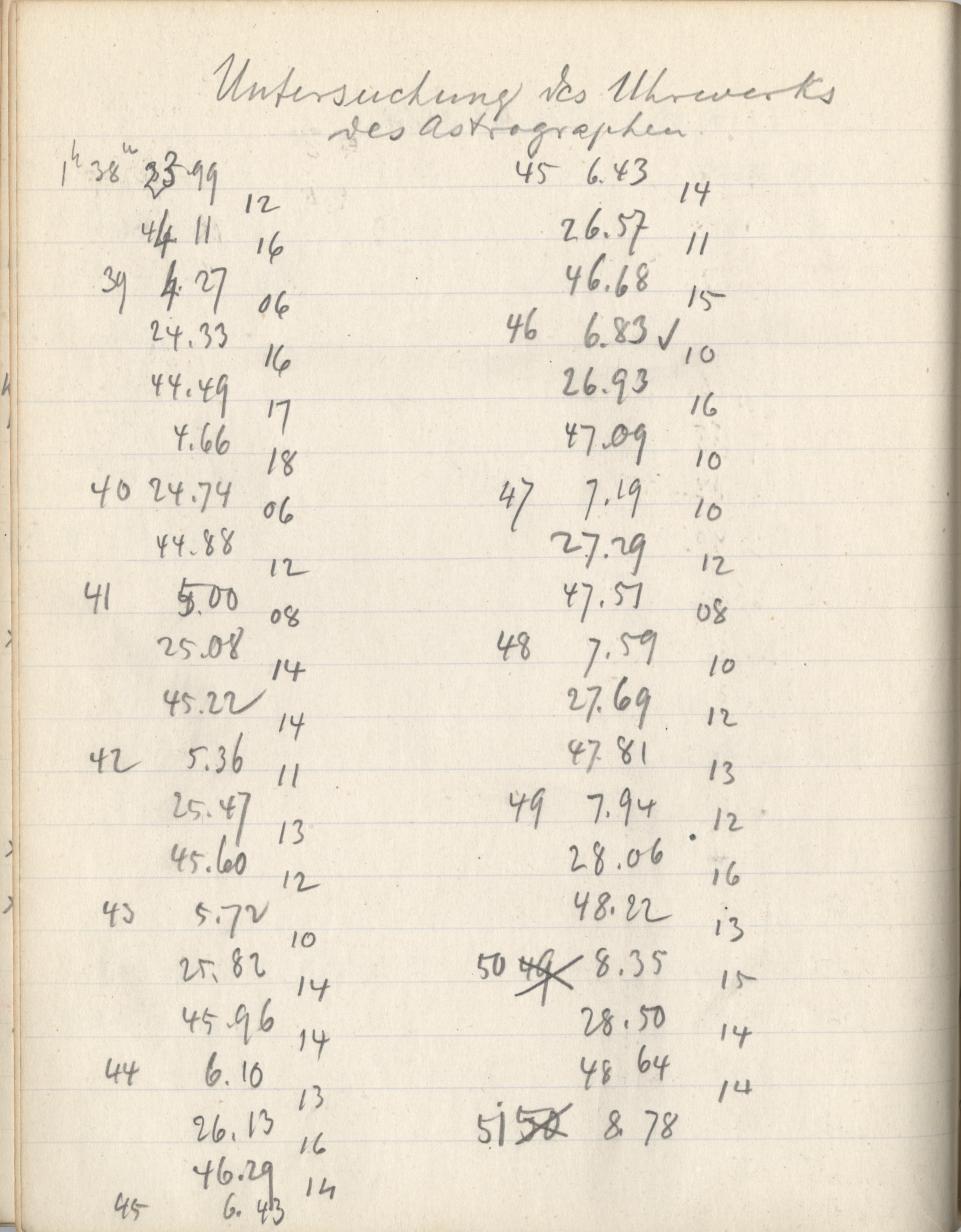 Untersuchung des Uhrwerks
des Astrographen
1h 38m 23.99
12
44 11
16
39 4.27
06
24.33
16
44.49
17
4.66
18
40 24.74
06
44.88
12
41 5.00
08
25.08
14
45.22
14
42 5.36
11
25.47
13
45.60
12
43 5.72
10
25.82
14
45.96
14
44 6.10
13
26.13
16
46.29
14
45 6.43
45 6.43
14
26.57
11
46.68
15
46 6.83 ✓
10
26.93
16
47.09
10
47 7.19
10
27.29
12
47.51
08
48 7.59
10
27.69
12
47.81
13
49 7.94
12
28.06
16
48.22
13
50 49 8.35
15
28.50
14
48 64
14
51 50 8.78